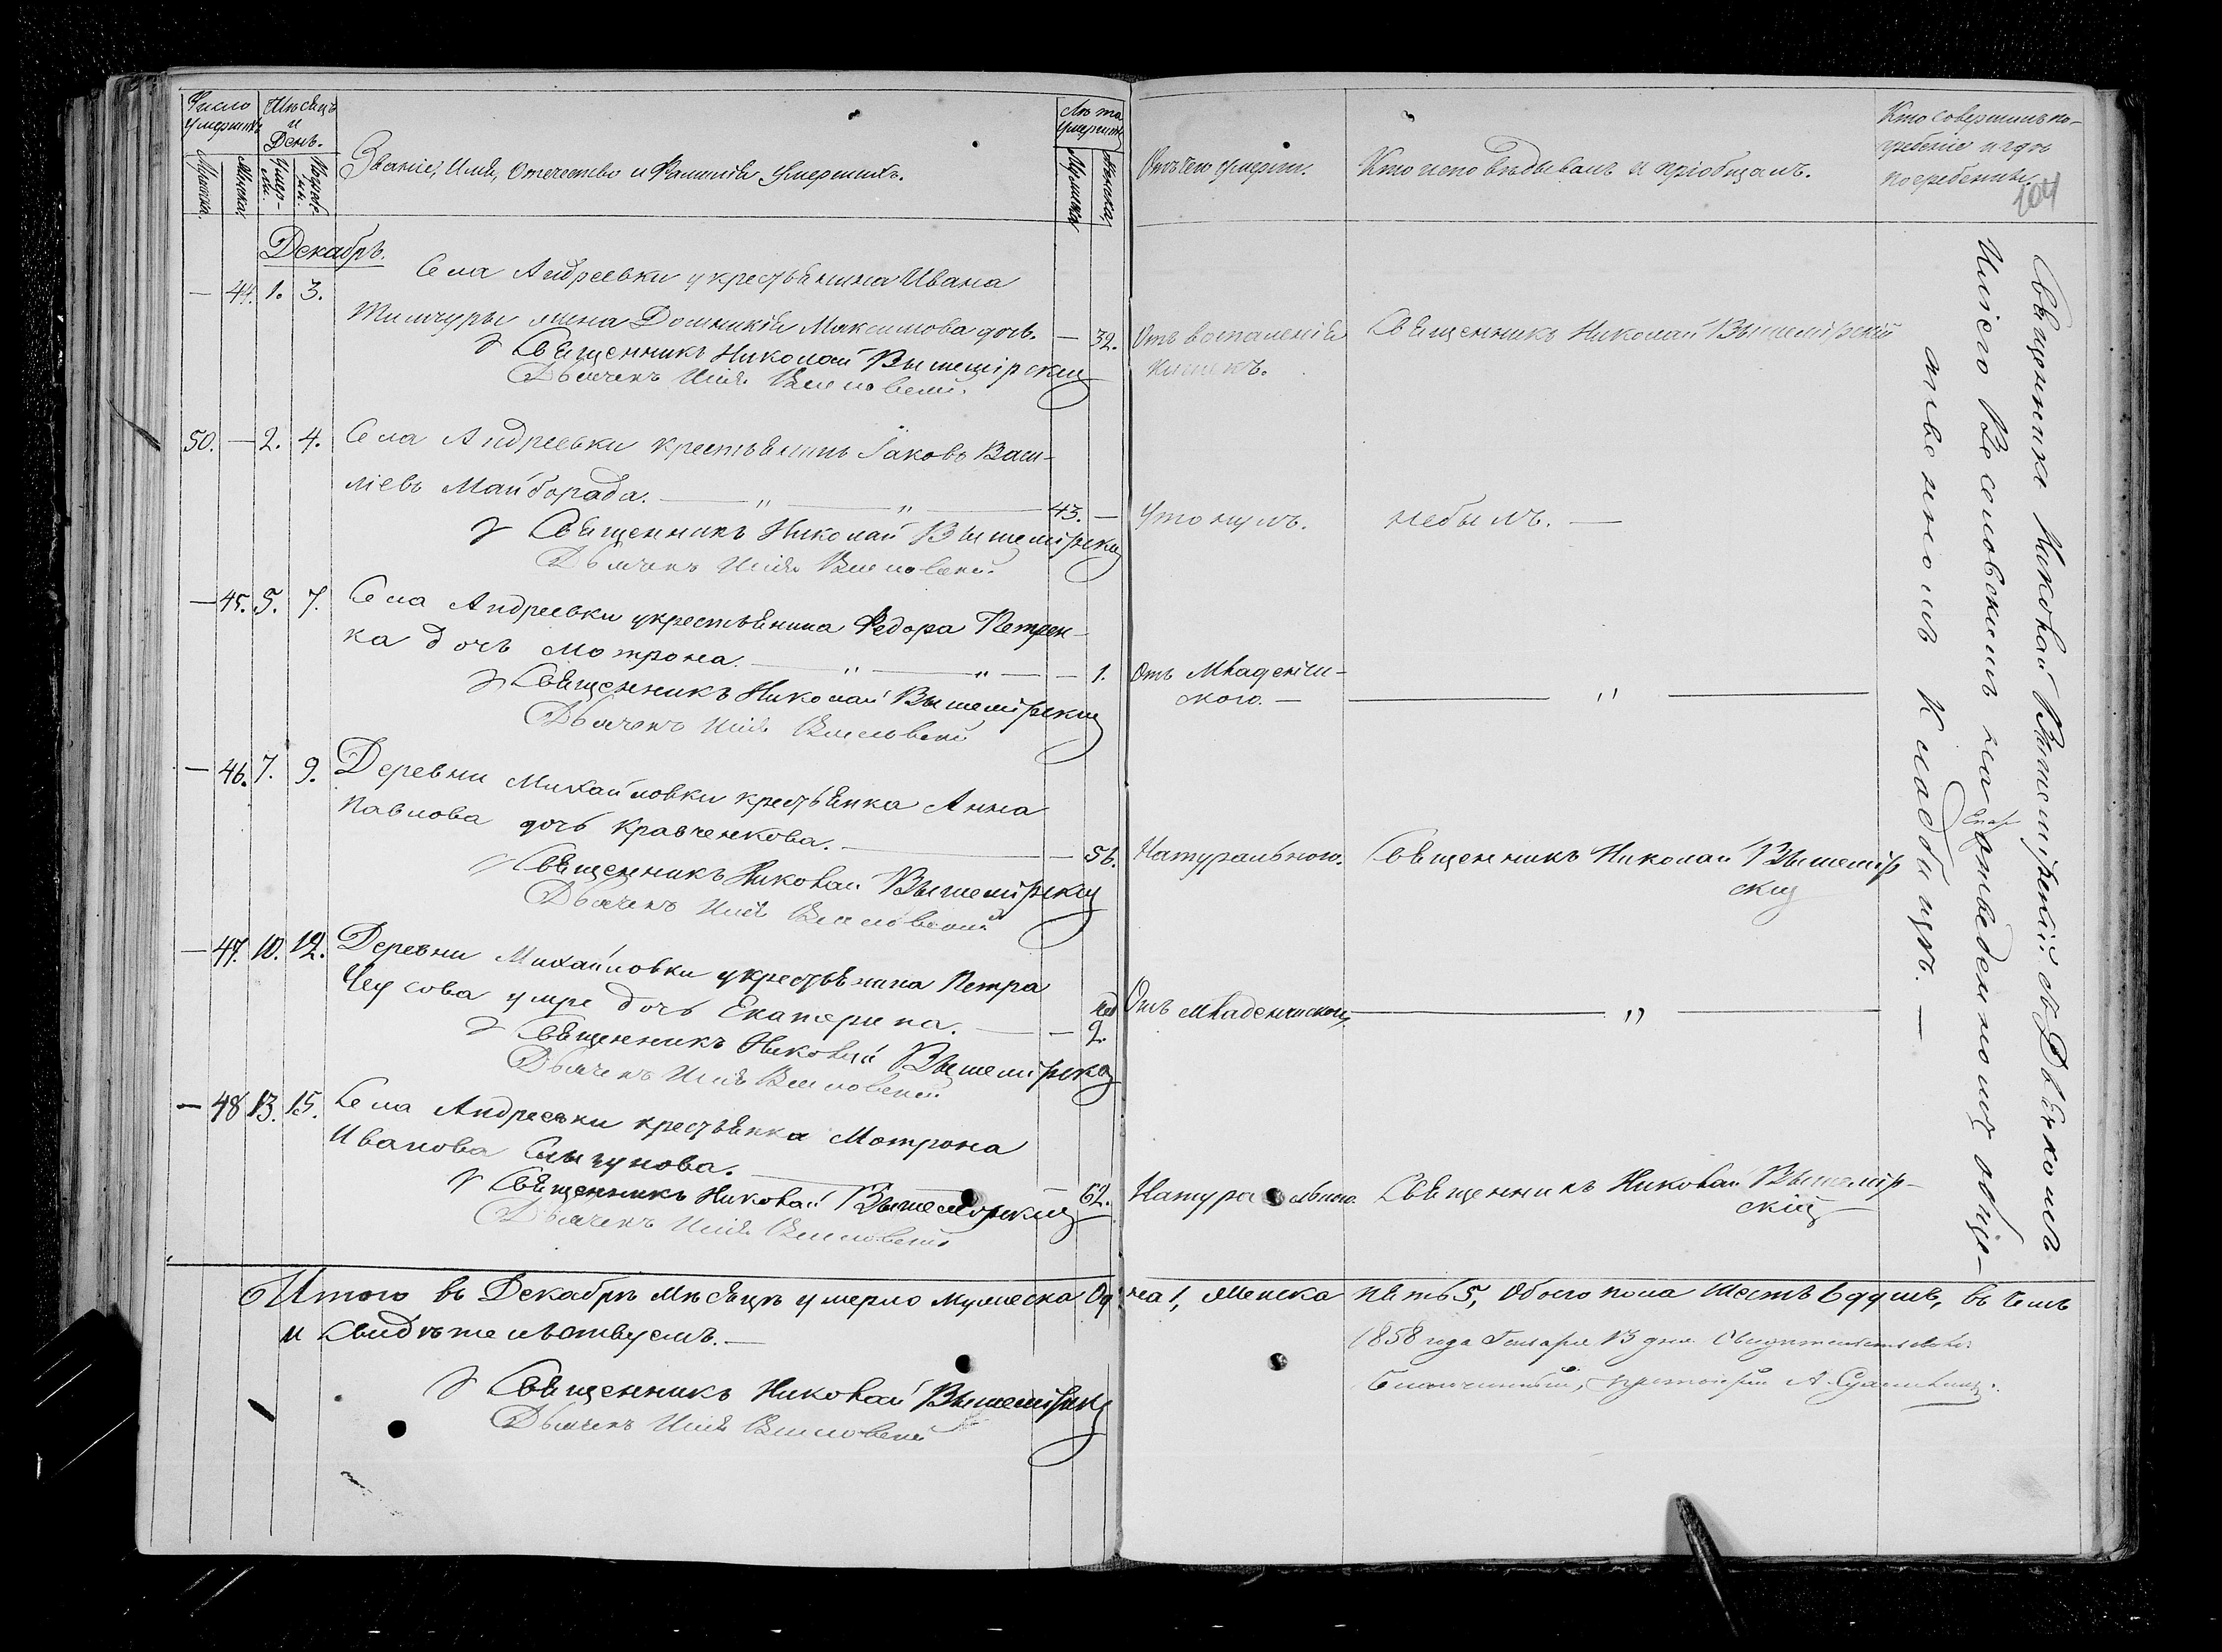 Число умершихъ
Мѣсяцъ и День.
Мужска.
Женска.
Умер-ли.
Званіе, Имя, Отечество и Фамилія Умершихъ.
Лѣта умершихъ
Мужеска
Женска
Отъ чего умерли.
Кто исповѣдывалъ и пріобщалъ.
Кто совершилъ по-
гребеніе и гдѣ
погребены.
204
Декабрь.
— 44. 1. 3. Села Андреевки у крестьянина Ивана
жена Домникія Максимова дочь. — 32. Отъ воспаленія Священникъ Николай Вышемірскій
кишекъ.
Священникъ Николай Вышемірскій
Дьячекъ Илія
50. — 2. 4. Села Андреевки крестьянинъ Іаковъ Васи-
ліевъ Майборада. — „ — „ — 43. — Утонулъ. небылъ. —
Священникъ Николай Вышемірскій
Дьячекъ Илія
— 45. 5. 7. Села Андреевки у крестьянина Федора Петрен-
ка дочь Мотрона. — „ — „ — — 1. Отъ Младенче-
ского. — — „ —
Священникъ Николай Вышемірскій
Дьячекъ Илія
— 46. 7. 9. Деревни Михайловки крестьянка Анна
Павлова дочь Кравченкова. — — 56. Натурально. Священникъ Николай Вышемір
скій
Священникъ Николай Вышемірскій
Дьячекъ Илія
— 47. 10. 12. Деревни Михайловки у крестьянина Петра
Чеусова умре дочь Екатерина. — — 2. Отъ младенческой, — „ —
Священникъ Николай Вышемірскій
Дьячекъ Илія
— 48 13. 15. Села Андреевки крестьянка Мотрона
Иванова — 62. Натурально Священникъ Николай Вышемір-
скій
Священникъ Николай Вышемірскій
Дьячекъ Илія
Священникъ Николай Вышемірскій съ Дьячкомъ
Иліею на отведенномъ обще-
ственномъ Кладбищѣ. —
Итого въ Декабрѣ Мѣсяцѣ умерло мужеска Одна 1, Женска пять 5, Обоего пола Шесть 6 душъ, въ чемъ
и Свидѣтельствуемъ. —
Священникъ Николай Вышемірскій
Дьячекъ Илія
1858 года Генваря 13 дня
Благочинный, протоіерей А.